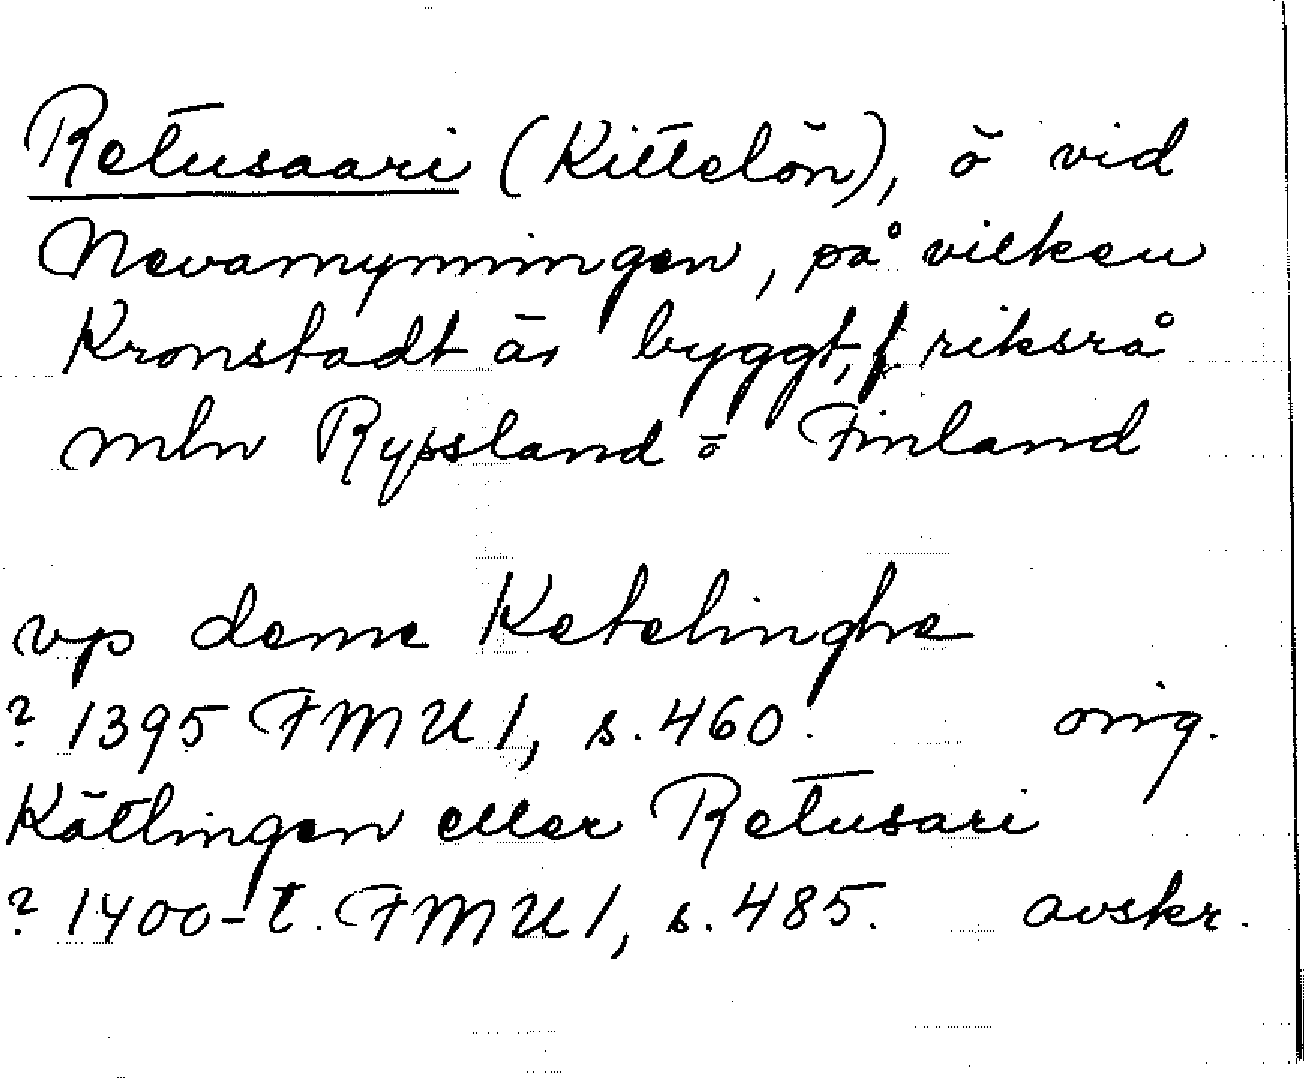 Retusaari (Kittelön), ö vid
Nevamynningen, på vilken
Kronstadt är byggt, f riksrå
mln Ryssland o Finland
vp deme Ketelinghe
? 1395 FMU 1, s. 460. orig.
Kätlingen eller Retusari
? 1400-t. FMU 1, s. 485. avskr.